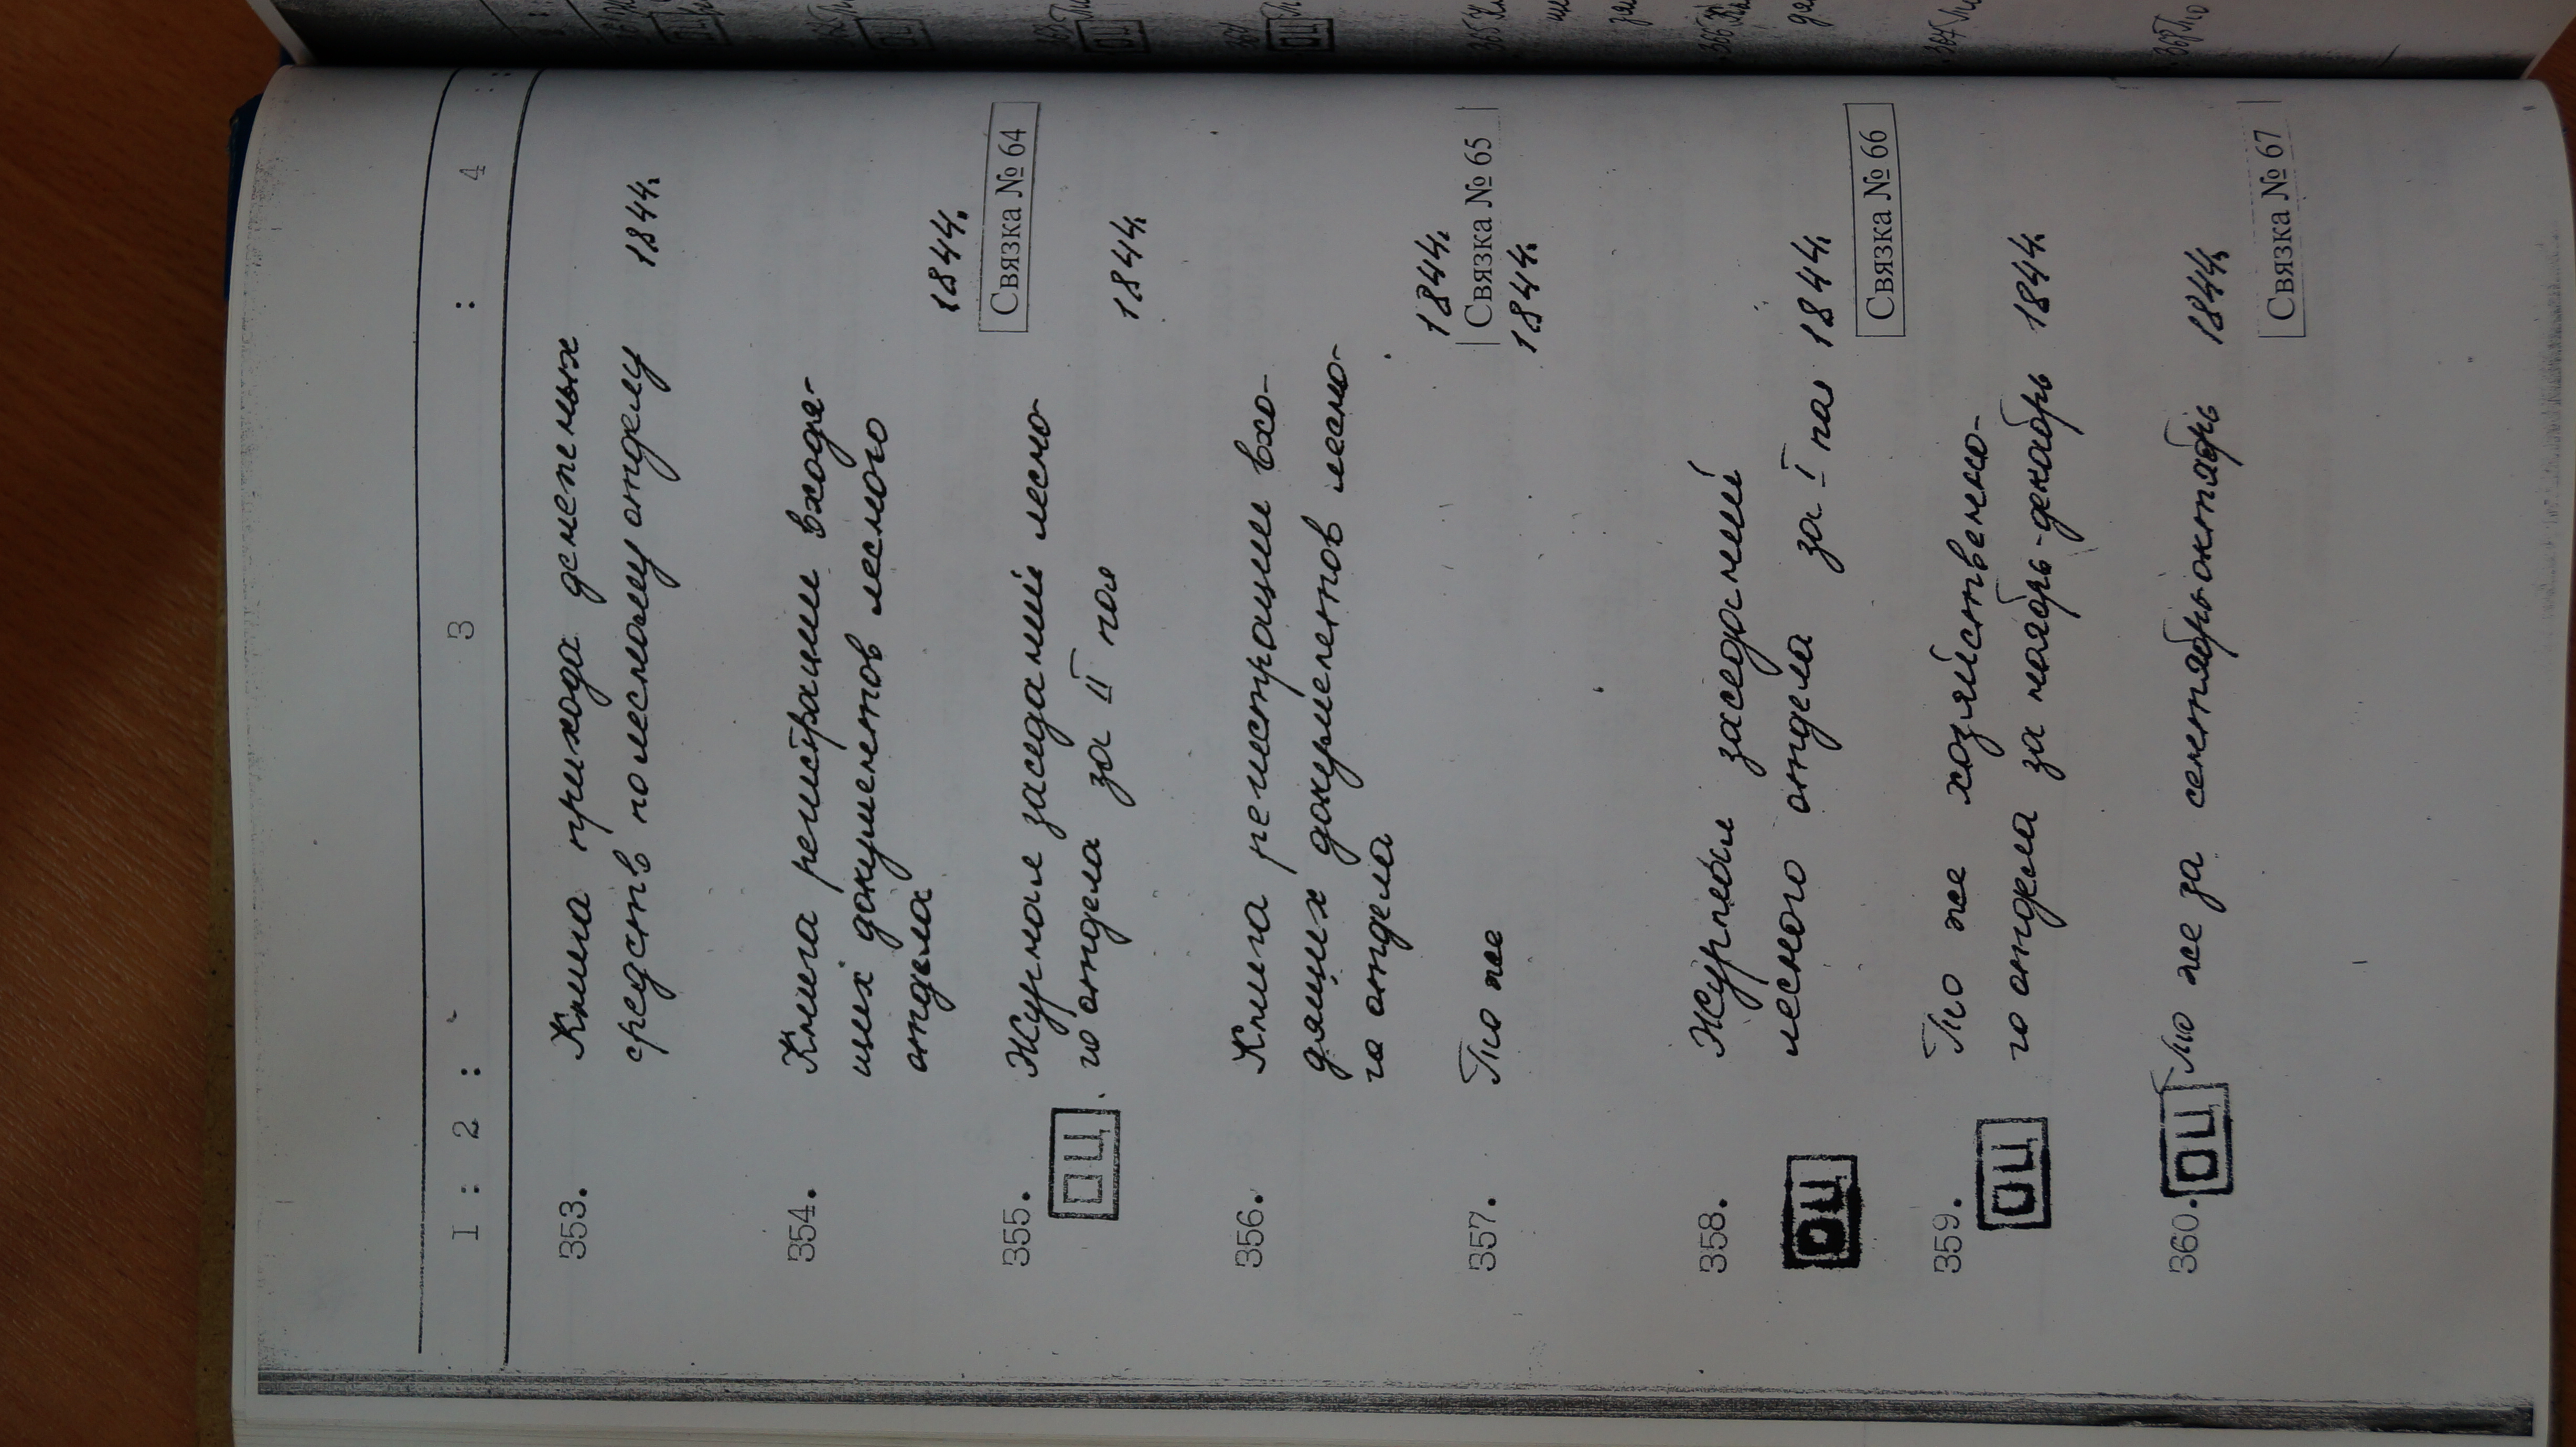 1 : 2 : 3 : 4 :
353. Книга прихода денежных
средств по лесному отделу 1844.
354. Книга регистрации входя-
щих документов лесного
отдела
1844.
Связка № 64
355. Журнал заседаний лесно-
ОЦ го отдела за II пол 1844.
356. Книга регистрации вхо-
дящих документов лесно-
го отдела
1844.
Связка № 65
357. То же 1844.
358. Журнал заседаний
ОЦ лесного отдела за I пол 1844.
Связка № 66
359. То же хозяйственно-
ОЦ го отдела за ноябрь-декабрь 1844.
360. ОЦ То же за сентябрь октябрь 1844.
Связка № 67